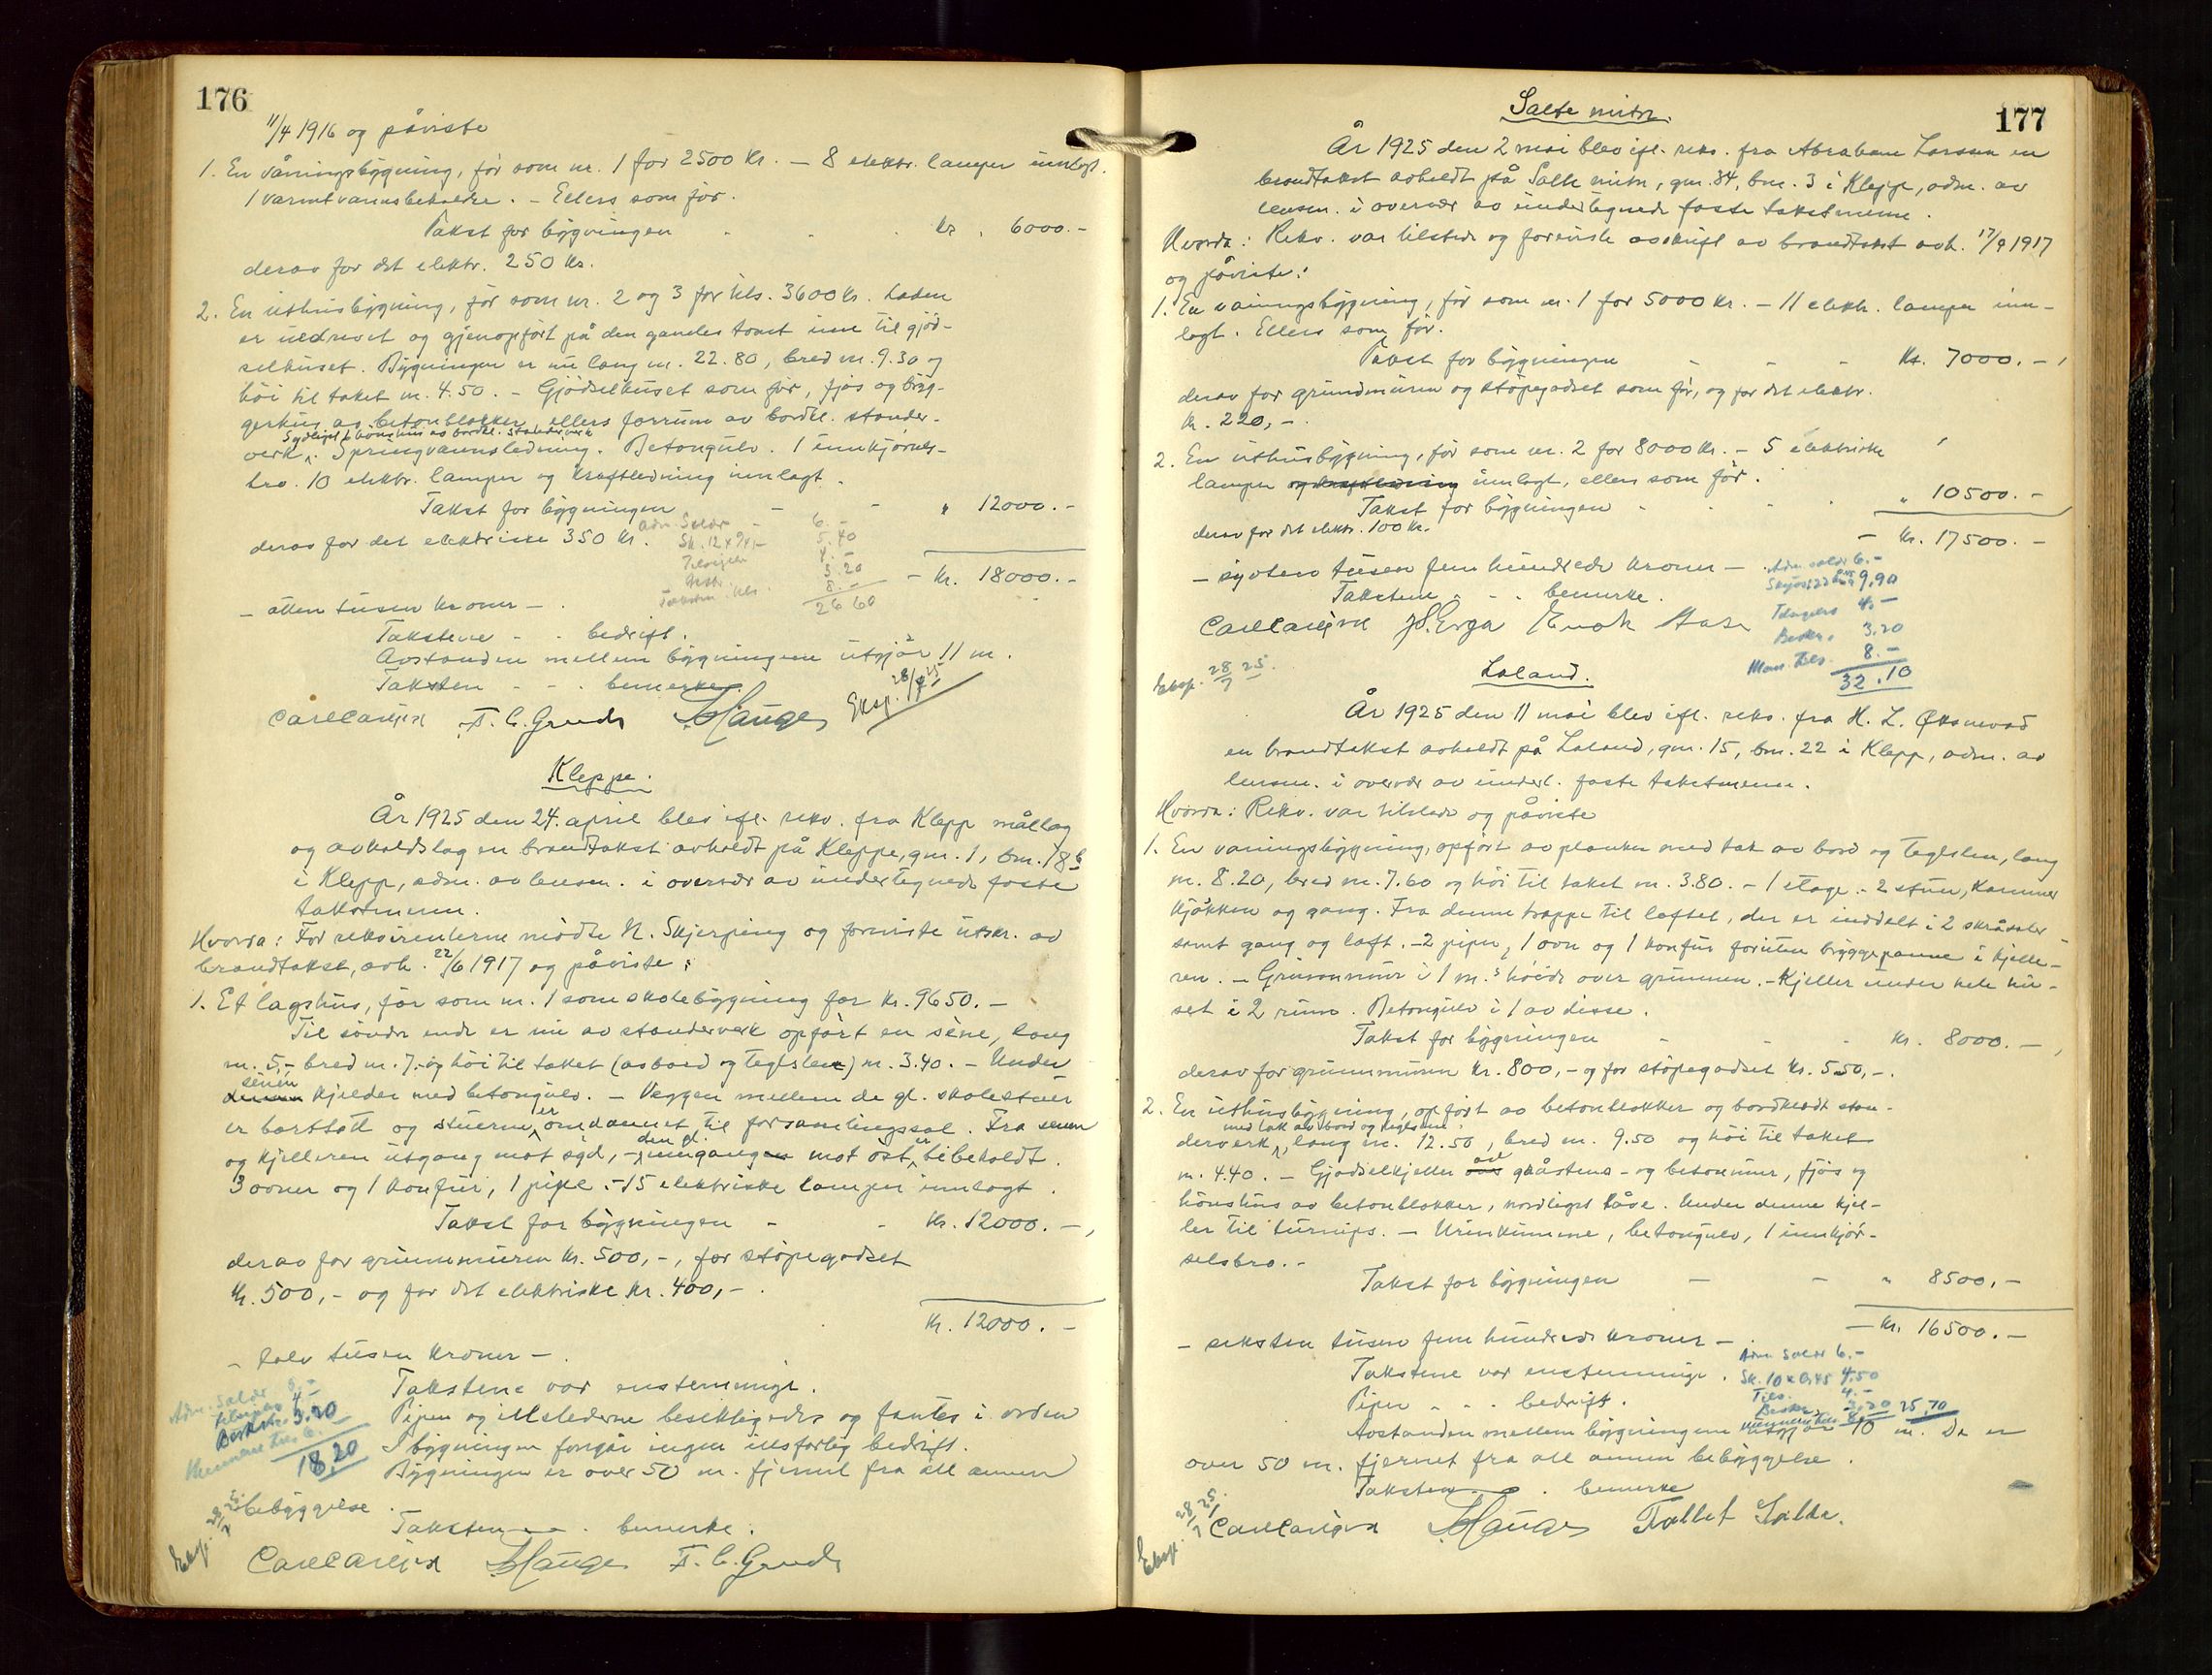 176
11/4 1916 og påviste
1. En våningsbygning, før som nr. 1 for 2500 Kr. — 8 elektr. lamper innlagt.
1 varmtvannsbeholder. — Ellers som før.
Takst for bygningen - - - kr. 6000.-
derav for det elektr. 250 Kr.
2. En uthusbygning, før som nr. 2 og 3 for tils. 3600 Kr. Laden
er nedrevet og gjenopført på den gamles tomt inne til gjöd-
selhuset. Bygningen er nu lang m. 22.80, bred m. 9.30 og
höi til taket m. 4.50. — Gjödselhuset som för, fjös og bryg-
gerhus av betonblokker, ellers forrum av bordkl. stander-
Sydligst 1 hönshus av bordkl. standerverk
verk. Springvannsledning. Betongulv. 1 innkjörsels-
bro. 10 elektr. lamper og kraftledning innlagt.
Takst for bygningen - - " 12000.-
derav for det elektriske 350 Kr.
Adm. Salær - 6.-
Sk. 12 x 5.40
4.-
3.20
8.-
26 60
- Kr. 18000.-
— atten tusen kroner —.
Takstene - - bedrift.
Avstanden mellem bygningene utgjör 11 m.
Taksten - - - bemerke.
Carl Carlsen F. C. Grude Hauge
Eksp. 28/7 25
Kleppe.
År 1925 den 24. april blev ifl. rekv. fra Klepp mållag
og avholdslag en brandtakst avholdt på Kleppe, gnr. 1, bnr. 186
i Klepp, adm. av lensm. i overvær av undertegnede faste
takstmenn.
Hvorda: For rekvirentene mödte N. Skjerpeng og foreviste utskr. av
brandtakst, avh. 22/6 1917 og påviste:
1. Et lagshus, för som nr. 1 som skolebygning for Kr. 9650.—
Til söndre ende er nu av standerverk opfört en séne, lang
m. 5,- bred m. 7,- og höi til taket (av bord og teglsten) m. 3.40. — Under
sénen
kjelder med betongulv. — Veggen mellem de gl. skolestuer
er borttatt og stuerne er omdannet til forsamlingssal. Fra senen
og kjelleren utgang mot syd, - den gl. inngang mot öst er bibeholdt.
3 ovner og 1 komfur, 1 pipe. — 15 elektriske lamper innlagt.
Takst for bygningen - - Kr. 12000.—,
derav for grunnmuren Kr. 500,-, for stöpegodset
Kr. 500,- og for det elektriske Kr. 400,-.
Kr. 12000.-
— tolv tusen kroner —.
Adm. Salær
4.-
Beskr. 3.20
18,20
Takstene var enstemmige.
Pipen og ildstederne besiktigedes og fantes i orden
I bygningen foregår ingen ildsfarlig bedrift.
Bygningen er over 50 m. fjernet fra all annen
bebyggelse.
Taksten - - . bemerke.
Eksp. 28/7 25.
Carl Carlsen Hauge F. C. Grude
177
Salte mitre.
År 1925 den 2 mai blev ifl. rekv. fra Abraham Larsen en
brandtakst avholdt på Salte mitre, gnr. 34, bnr. 3 i Klepp, adm. av
lensm. i overvær av undertegnede faste takstmenn.
Hvorda: Rekv. var tilstede og foreviste avskrift av brandtakst avh. 17/9 1917
og påviste:
1. En våningsbygning, för som nr. 1 for 5000 Kr. — 11 elektr. lamper inn-
lagt. Ellers som för.
Takst for bygningen - - - Kr. 7000.-,
derav for grundmuren og stöpegodset som för, og for det elektr.
Kr. 220,-.
2. En uthusbygning, för som nr. 2 for 8000 Kr. — 5 elektriske
lamper og kraftledning innlagt, ellers som för.
Takst for bygningen - - - " 10500.-
derav for det elektr. 100 Kr.
- Kr. 17500.-
— sytten tusen fem hundrede kroner —.
Takstene - - . bemerke.
Adm. salær 6.-
9.90
4.-
Beskr. 3.20
Menn. tils. 8.-
32.10
Carl Carlsen J. S. Erga Enok Aase
Eksp. 28/7 25.
Laland.
År 1925 den 11 mai blev ifl. rekv. fra H. L. Öksnevad
en brandtakst avholdt på Laland, gnr. 15, bnr. 22 i Klepp, adm. av
lensm. i overvær av undert. faste takstmenn.
Hvorda: Rekv. var tilstede og påviste
1. En våningsbygning, opfört av planker med tak av bord og teglsten, lang
m. 8.20, bred m. 7.60 og höi til taket m. 3.80. — 1 etage. — 2 stuer, kammer
kjökken og gang. Fra denne trappe til loftet, der er inddelt i 2 skråsaler
samt gang og loft. — 2 piper, 1 ovn og 1 komfur foruten bryggepanne i kjelle-
ren. — Grunnmur i 1 m.s höide over grunnen. — Kjeller under hele hu-
set i 2 rum. Betongulv i 1 av disse.
Takst for bygningen - - - Kr. 8000.—,
derav for grunnmuren Kr. 800,- og for stöpegodset Kr. 550,-.
2. En uthusbygning, opfört av betonblokker og bordklædt stan-
med tak av bord og teglstene
derverk, lang m. 12.50, bred m. 9.50 og höi til taket
m. 4.40. — Gjödselkjeller av gråstens- og betonmur, fjös og
hönshus av betonblokker, nordligst låve. Under denne kjel-
ler til turnips. — Urinkumme, betongulv, 1 innkjör-
selsbro. —
Takst for bygningen - - " 8500,-
— Kr. 16500.-
— seksten tusen fem hundrede kroner —.
Takstene var enstemmige.
Piper - - . bedrift.
Adm. Salær 6.-
Sk. 10 x 0,45 4.50
Tils. 4.-
Beskr. 3.20 25,70
Avstanden mellem bygningene utgjör 10 m. De er
over 50 m. fjernet fra all annen bebyggelse.
Taksten - - . bemerke
Eksp. 28/7 25.
Carl Carlsen Hauge Tollef Salte.